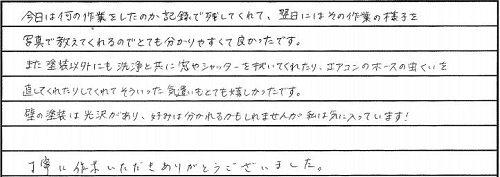 今日は何の作業をしたのか記録で残してくれて、翌日にはその作業の様子を
写真で教えてくれるのでとても分かりやすくて良かったです。
また塗装以外にも洗浄と共に窓やシャッターを拭いてくれたり、エアコンのホースの虫くいを
直してくれたりしてくれてそういった気遣いもとても嬉しかったです。
壁の塗装は光沢があり、好みは分かれるかもしれませんが私は気に入っています!
丁寧に作業いただきありがとうございました。